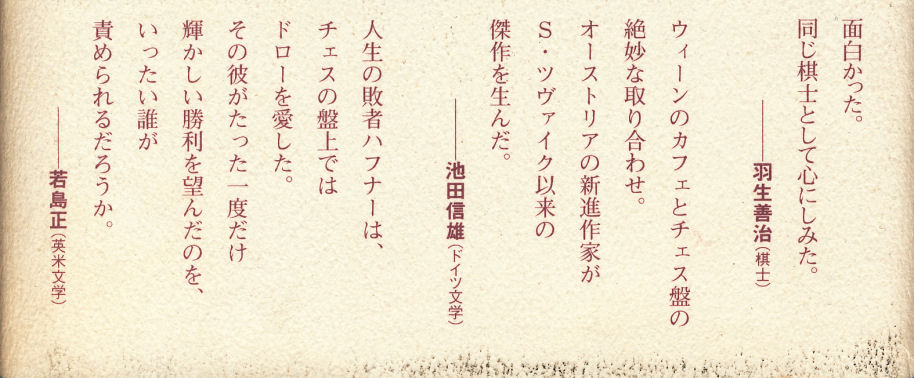 面白かった。
同じ棋士として心にしみた。
――羽生善治（棋士）
ウィーンのカフェとチェス盤の
絶妙な取り合わせ。
オーストリアの新進作家が
S・ツヴァイク以来の
傑作を生んだ。
――池田信雄（ドイツ文学）
人生の敗者ハフナーは、
チェスの盤上では
ドローを愛した。
その彼がたった一度だけ
輝かしい勝利を望んだのを、
いったい誰が
責められるだろうか。
――若島正（英米文学）